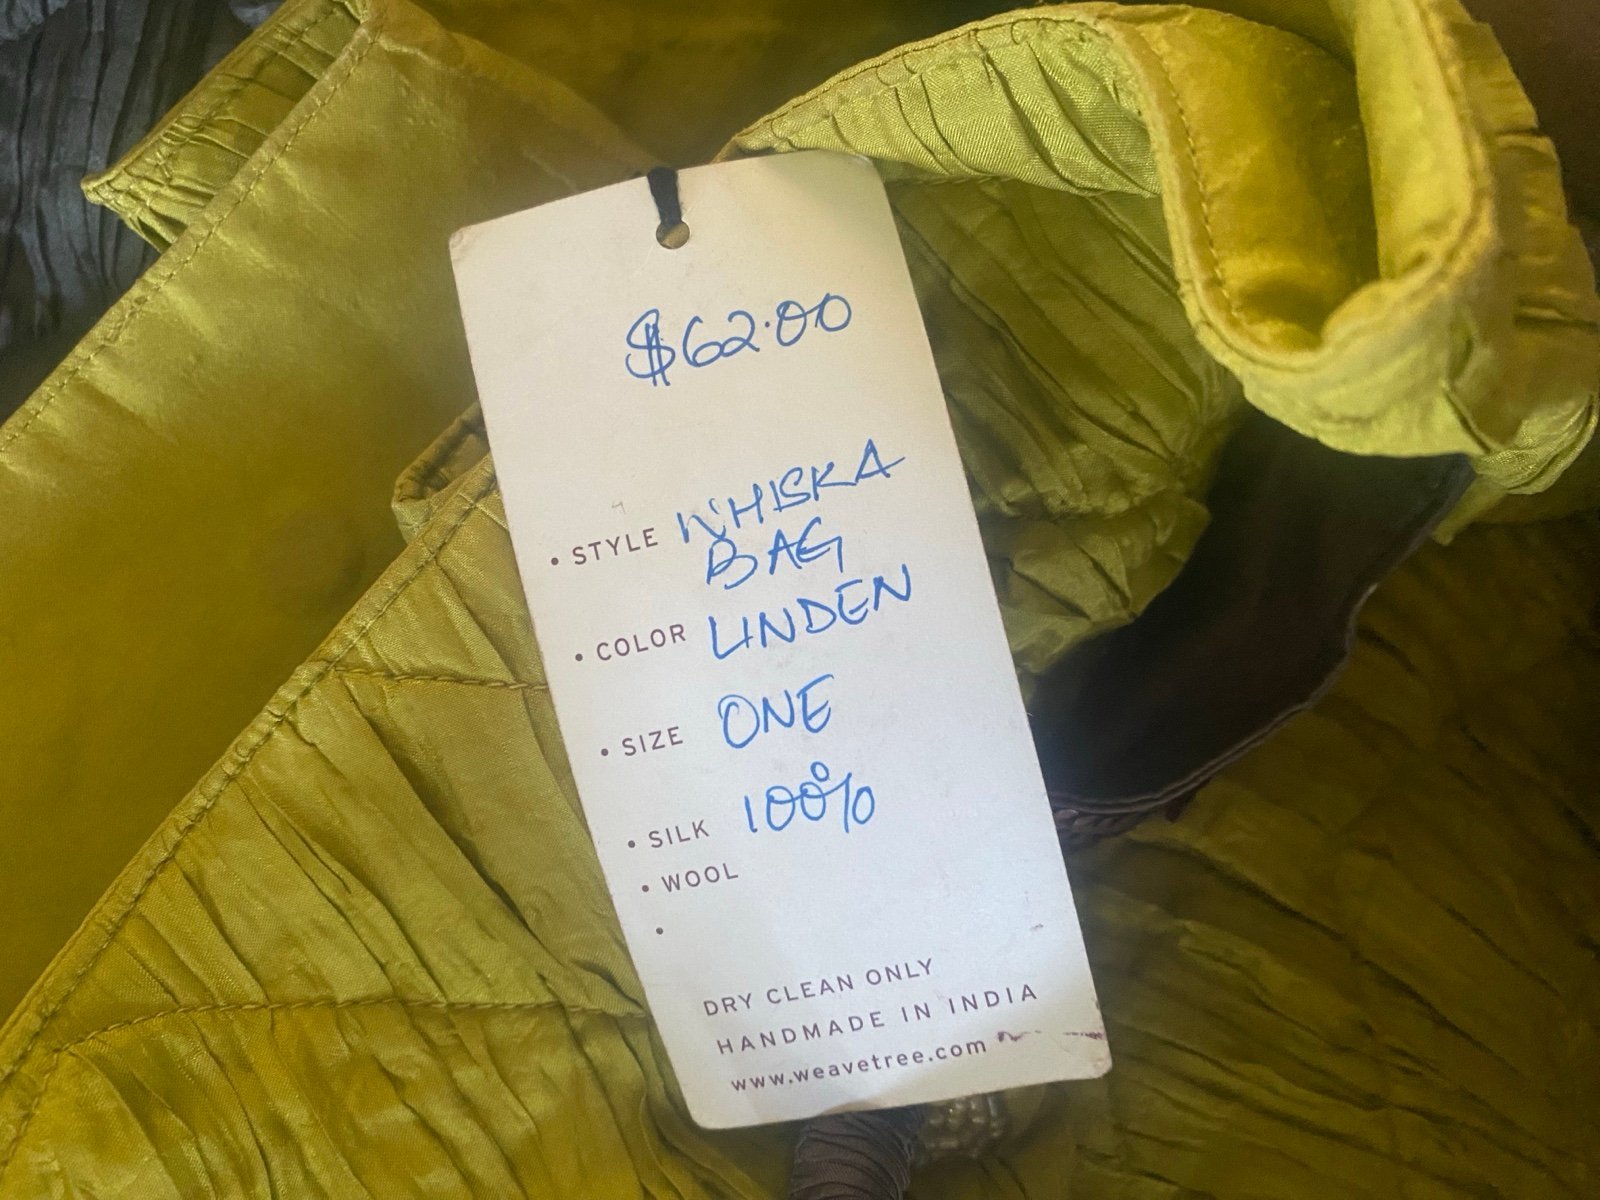 $62.00
• STYLE WHISKA
BAG
• COLOR LINDEN
• SIZE ONE
• SILK 100%
• WOOL
•
DRY CLEAN ONLY
HANDMADE IN INDIA
www.weavetree.com